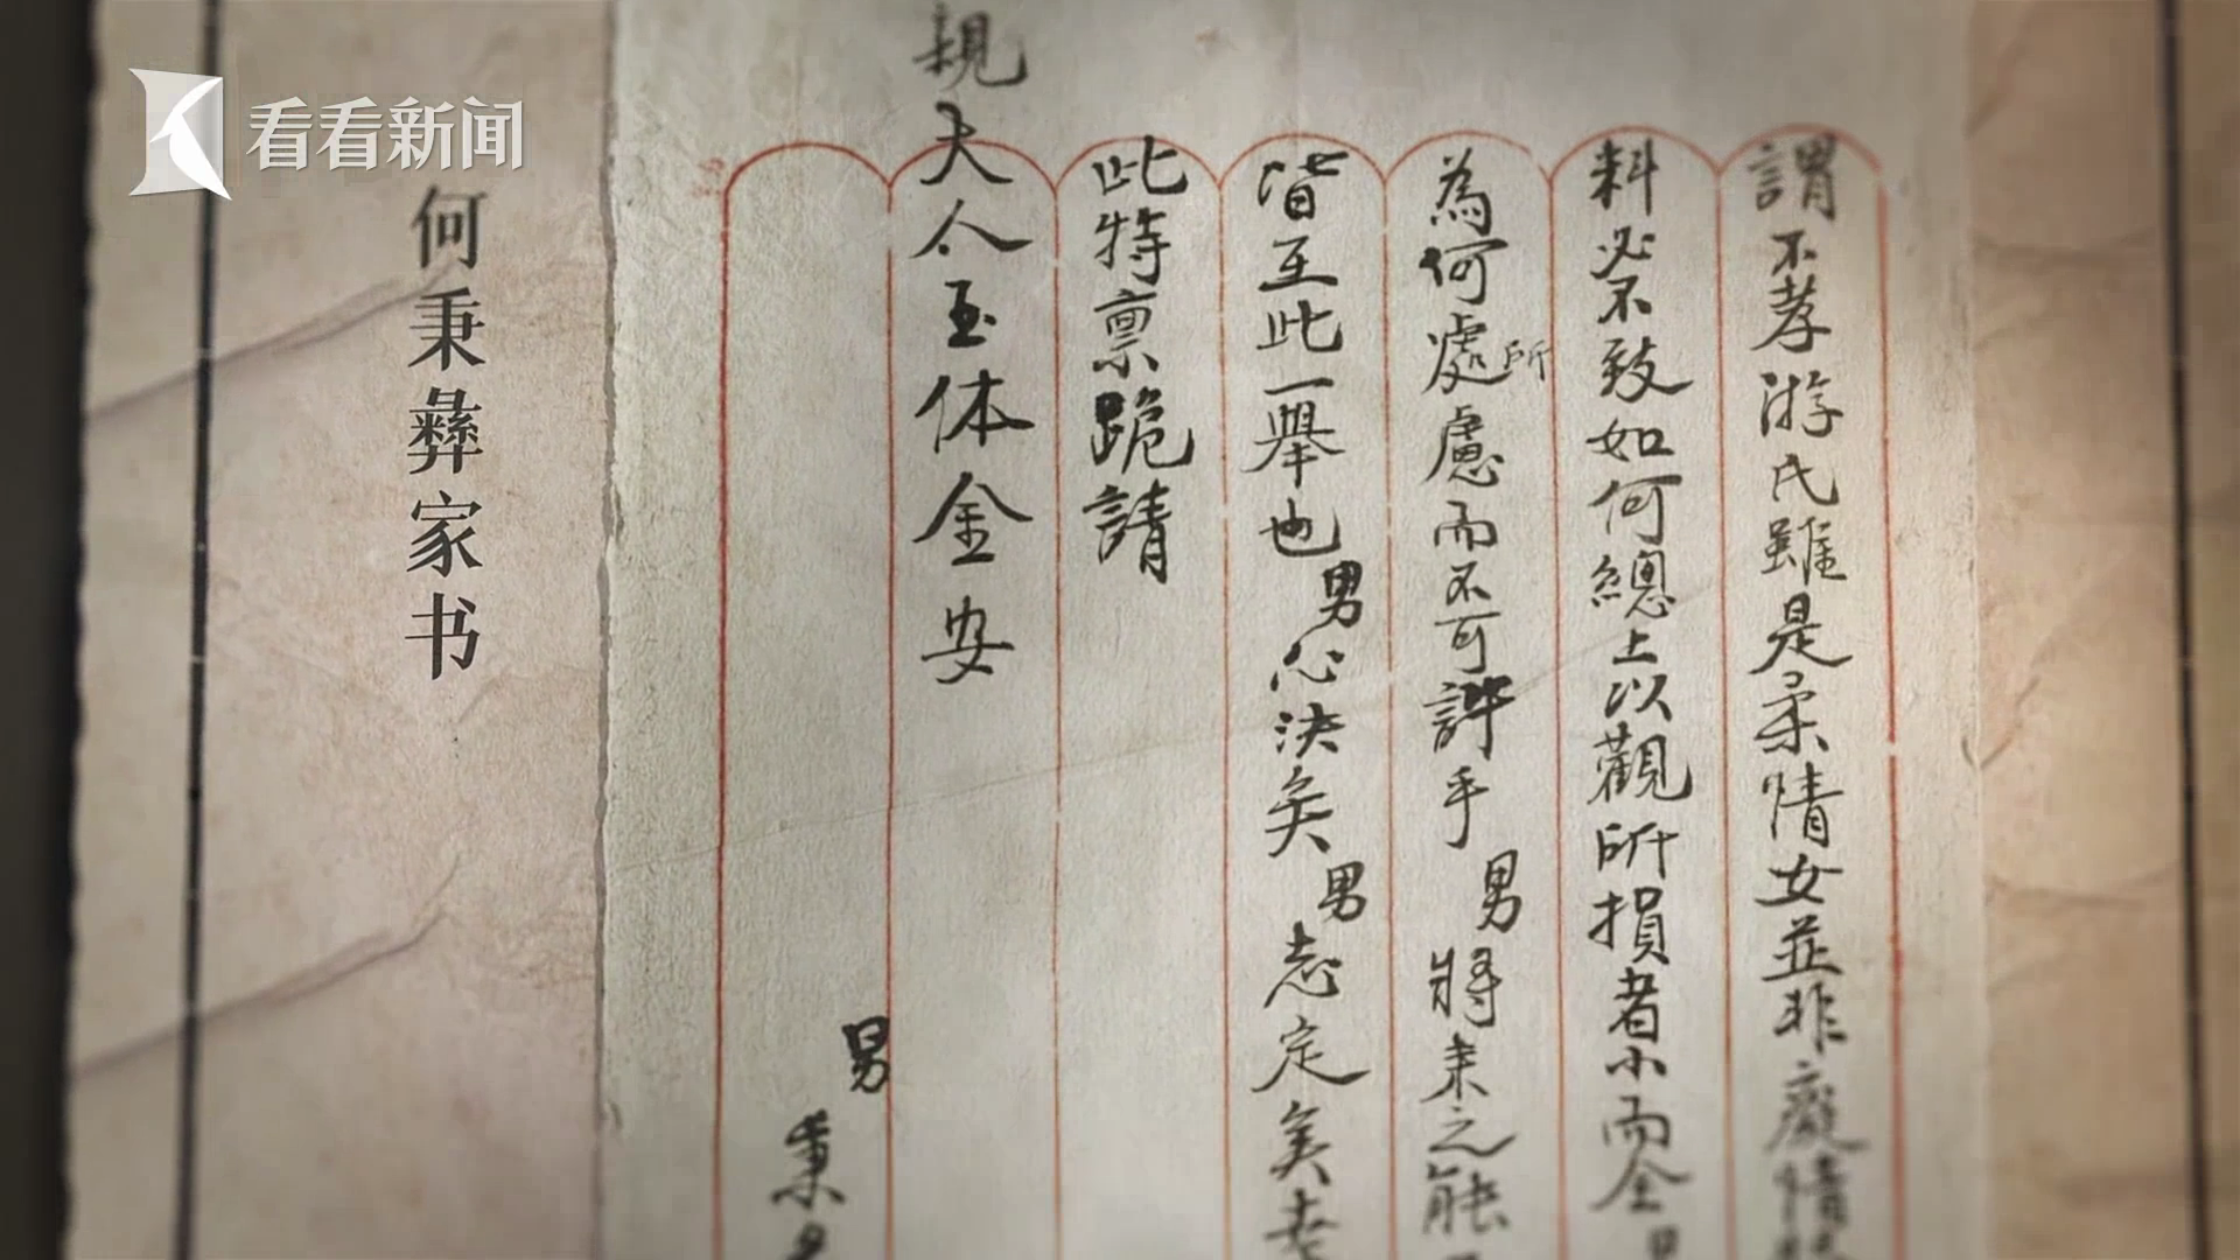 看看新闻
何秉彝家书
謂不孝游氏雖是柔情女並非癡情
料必不致如何總上以觀所損者小而全男
為何處所慮而不可許乎男將來之能
皆至此一舉也男心決矣男志定矣
此特禀跪請
親大人玉体金安
男秉